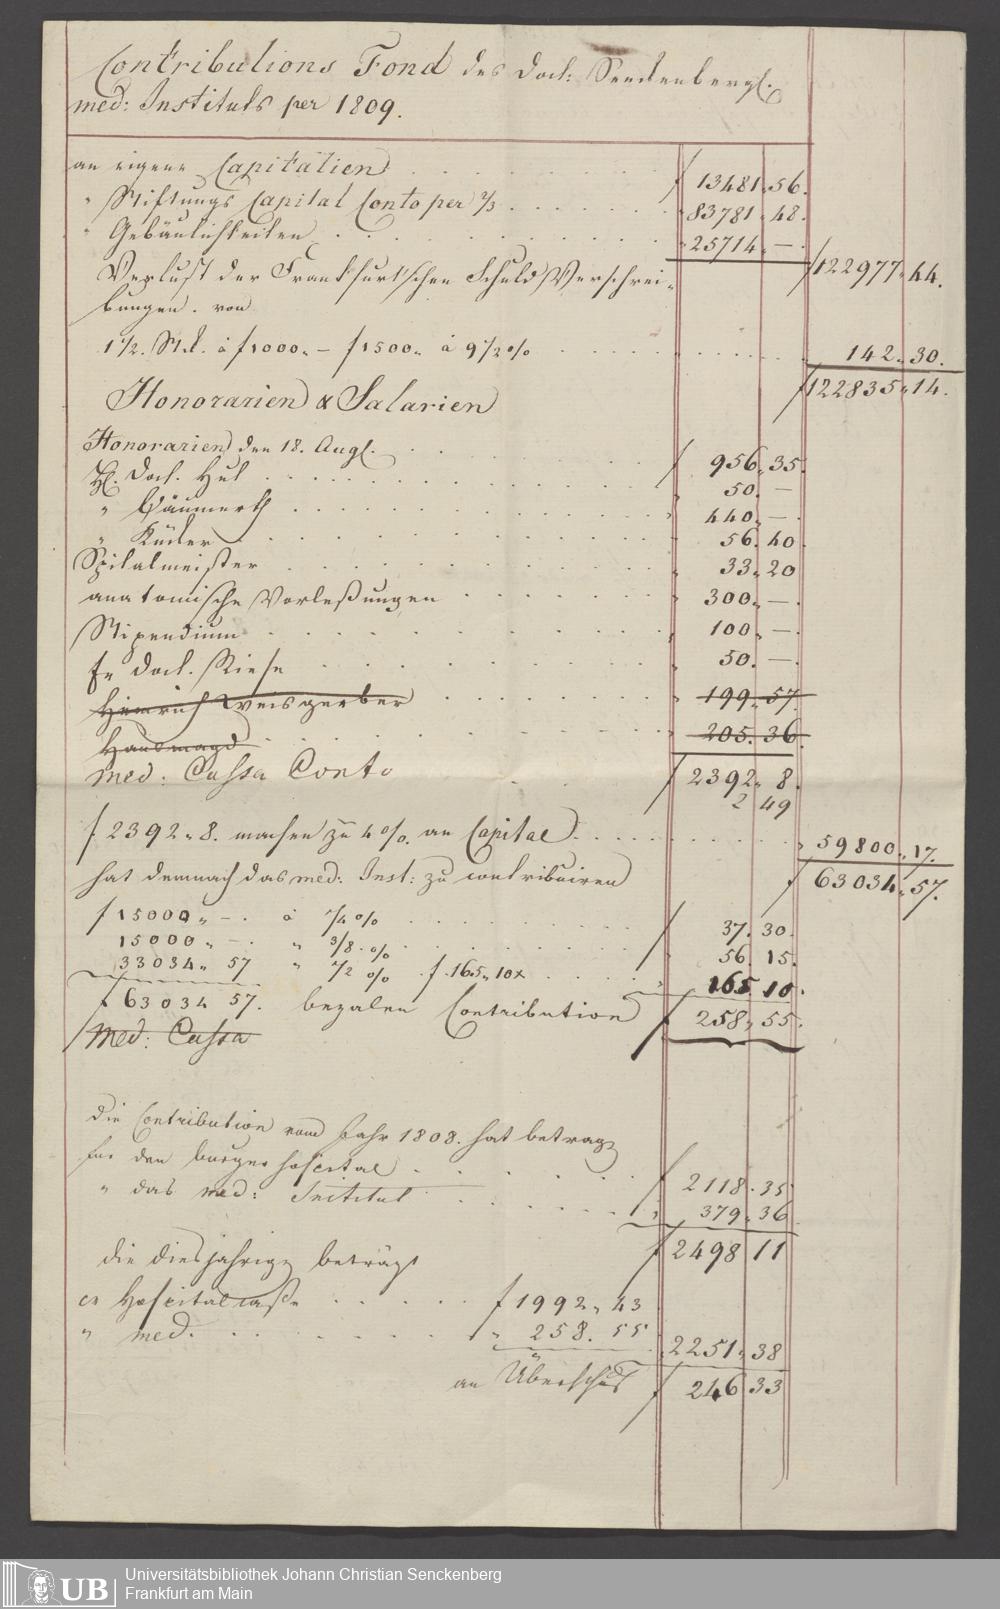 Contributions Fond des Doct: Senckenbergl:
med: Instituts per 1809.
an eigene Capitalien . . . f 13481 „ 56.
„ Stiftungs Capital Conto per 2/3 . . . „ 83781 „ 48.
„ Gebäulichkeiten . . . „ 25714 „ — . f 122977 „ 44.
Verlust der Frankfurtschen Schuld Verschrei-
bungen. von
1 1/2. Stck. à f 1000. — f 1500 „ à 9 1/2 % . . . 142 „ 30.
f 122835 „ 14.
Honorarien & Salarien
Honorarien den 18. Augt. . . . f 956 „ 35.
H. Doct. Hut . . . „ 50. —
„ Bäumerth . . . „ 440 „ — .
„ Küster . . . „ 56. 40
Spitalmeister . . . „ 33 „ 20
anatomische Vorleßungen . . . „ 300 „ — .
Stipendium . . . „ 100 „ — .
Fr Doct. Riese . . . „ 50. — .
Heinrich Weisgerber . . . „ 199 „ 57.
Hausmagd . . . „ 205. 36.
med: Cassa Conto f 2392 „ 8.
2 49
f 2392 „ 8. machen zu 4 %. an Capital . . . „ 59800 „ 17.
hat demnach das med: Inst: zu contribuiren f 63034 „ 57.
f 15000 „ — . à 1/4 % . . . f 37. 30.
15000 „ — . „ 3/8 % . . . 56. 15.
33034 „ 57 „ 1/2 % f 165 „ 10x . . . „ 165 10.
f 63034 57. bezalen Contribution f 258 „ 55.
Med: Cassa
die Contribution vom Jahr 1808. hat betragen
für den burger hospital . . . f 2118. 35
„ das med: Institut . . . „ 379 „ 36
f 2498 11
die diesjahrige beträgt
Hospitalcasse . . . f 1992 „ 43
„ med. . . . „ 258. 55 2251 „ 38
an Überschuß f 246 33
UB Universitätsbibliothek Johann Christian Senckenberg
Frankfurt am Main